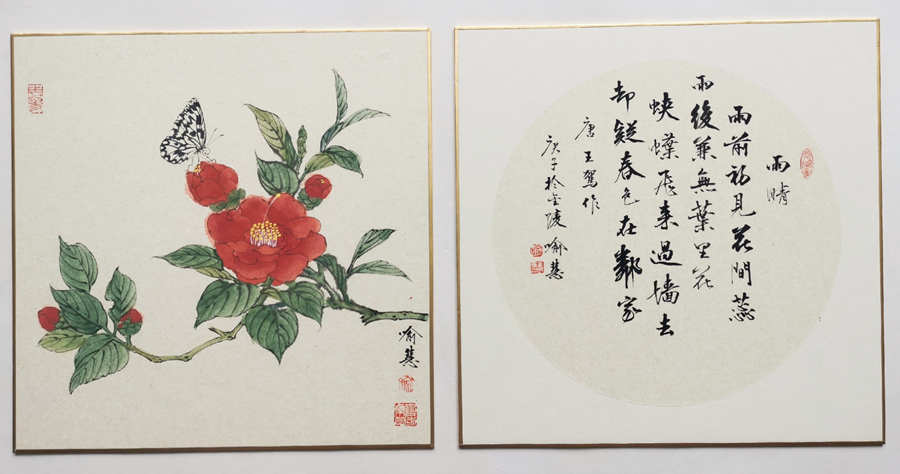 喻慧
雨晴
雨前初見花間蕊
雨後兼無葉里花
蛺蝶飛来過墻去
却疑春色在鄰家
唐王駕作
庚子於金陵喻慧